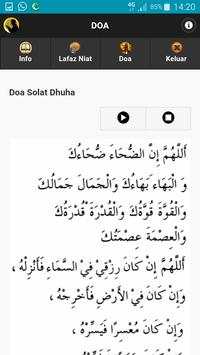 4G 85% 14:20
DOA
Info Lafaz Niat Doa Keluar
Doa Solat Dhuha
أَللَّهُمَّ إِنَّ الضُّحَآءَ ضُحَاءُكَ
وَ الْبَهَاءَ بَهَاءُكَ وَالْجَمَالَ جَمَالُكَ
وَالْقُوَّةَ قُوَّتُكَ وَالْقُدْرَةَ قُدْرَتُكَ
وَالْعِصْمَةَ عِصْمَتُكَ
أَللَّهُمَّ إِنْ كَانَ رِزْقِيْ فِيْ السَّمَاءِ فَأَنْزِلْهُ ،
وَإِنْ كَانَ فِيْ الْأَرْضِ فَأَخْرِجْهُ ،
وَإِنْ كَانَ مُعْسِرًا فَيَسِّرْهُ